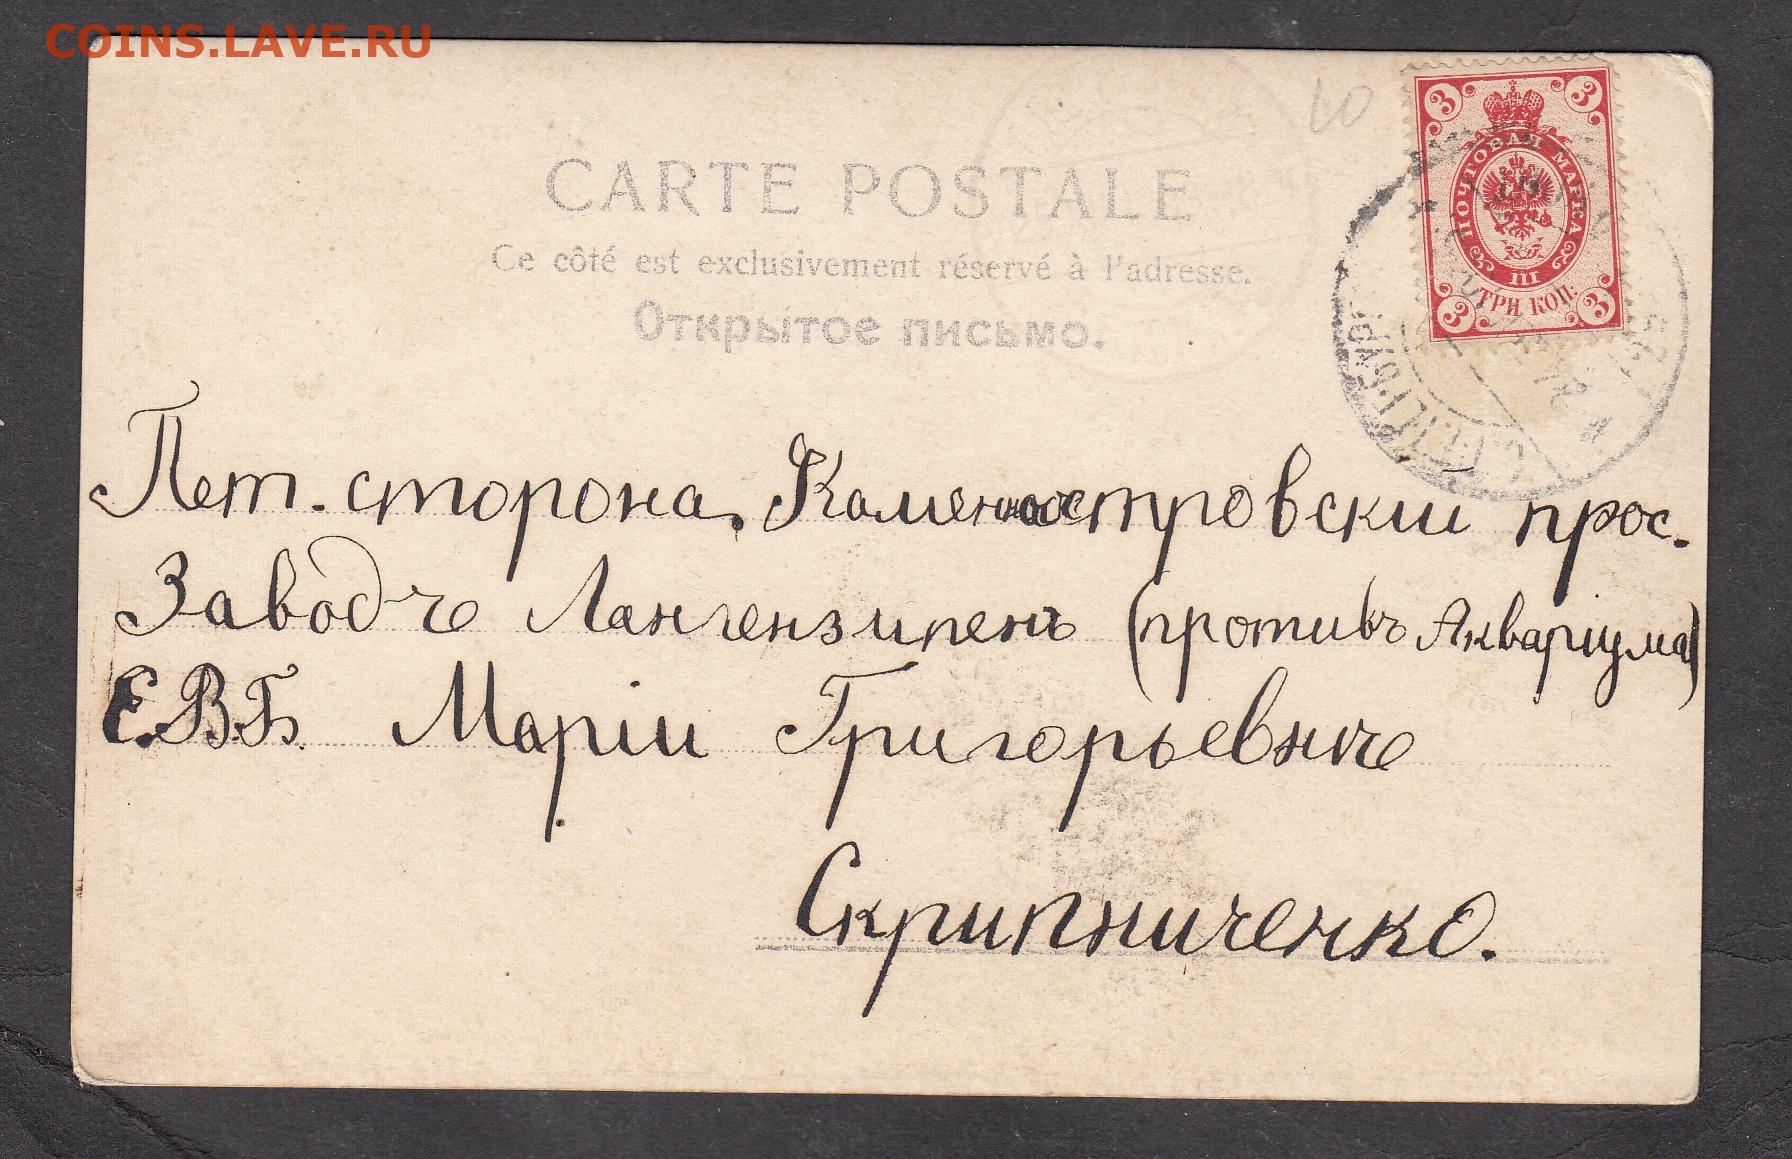 COINS.LAVE.RU
10
CARTE POSTALE
Ce côté est exclusivement réservé à l'adresse.
Открытое письмо.
3 3
ПОЧТОВАЯ МАРКА
III
3 ТРИ КОП. 3
Пет. сторона. Каменноостровский прос.
Заводъ Лангензипенъ (противъ Аквариума)
Е.В.Б. Маріи Григорьевнѣ
Скрипниченко.